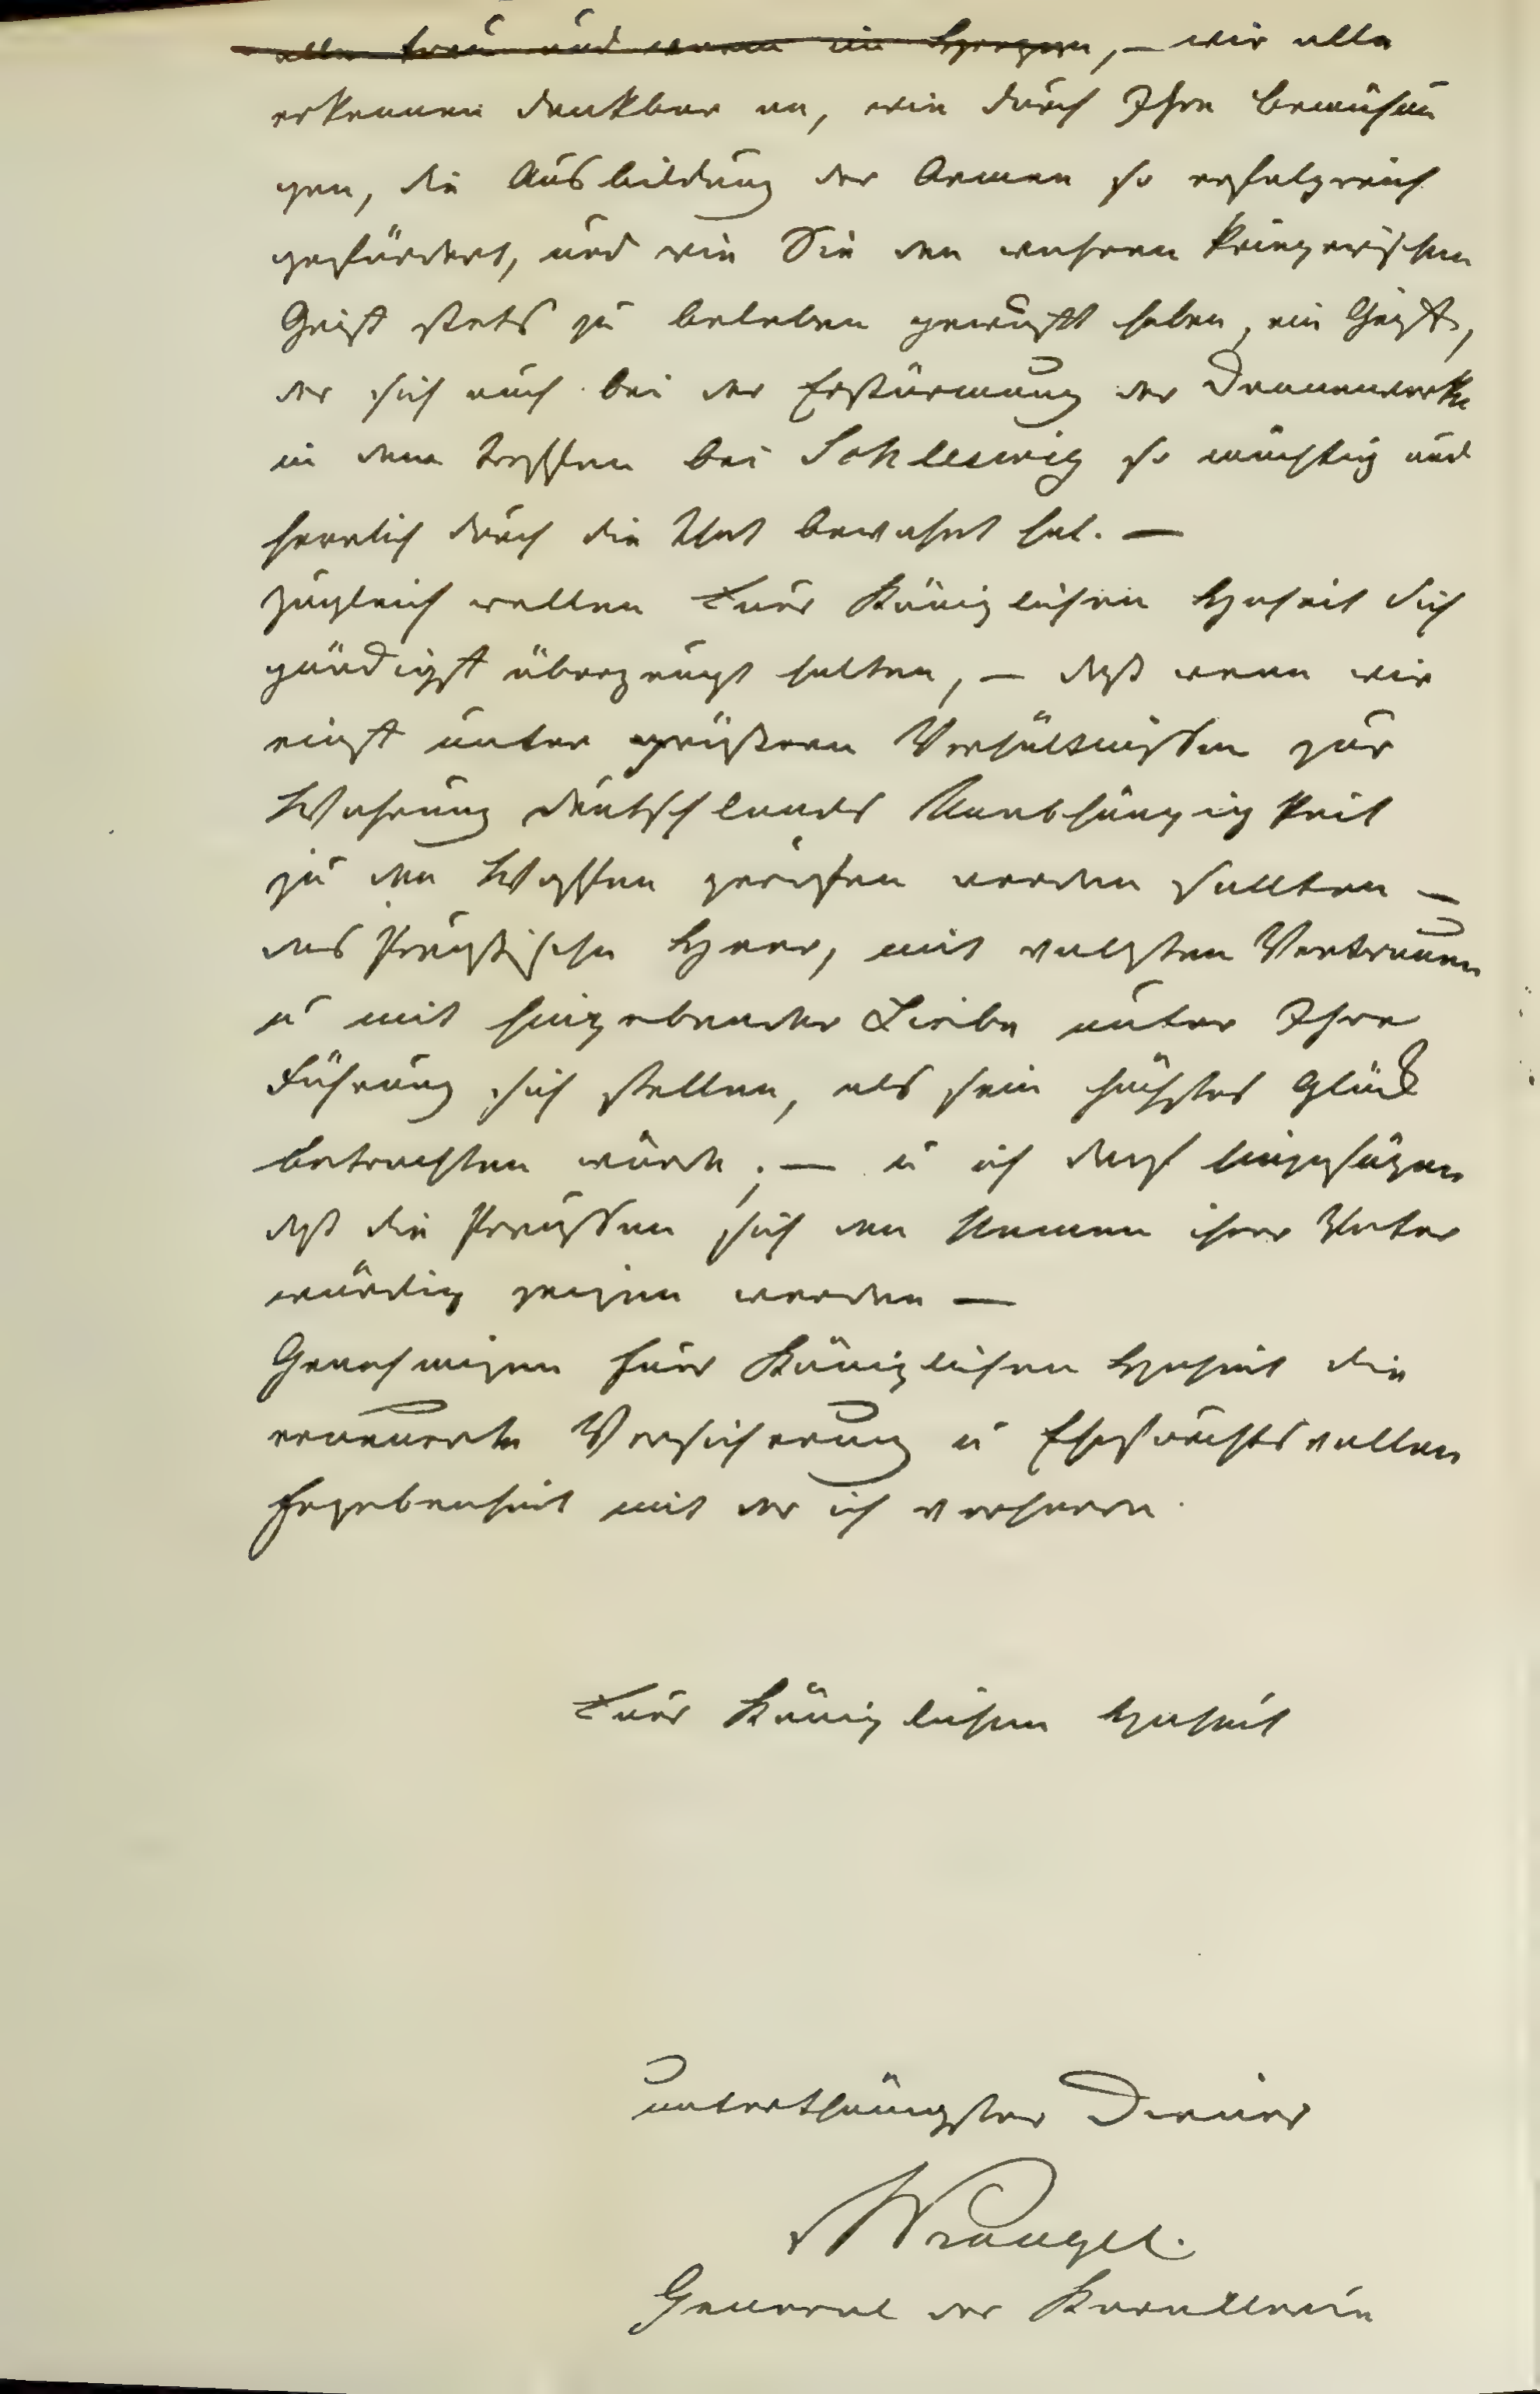 alle treu und warm im Herzen, – wir alle
erkennen dankbar an, wie durch Ihre Bemühun
gen, die Ausbildung der Armee so erfolgreich
gefördert, und wie Sie den wahren kriegerischen
Geist stets zu beleben gewußt haben, ein Geist,
der sich auch bei der Erstürmung der Dannewerke
in dem Treffen bei Schleswig so mächtig und
herrlich durch die That bewahrt hat. –
Zugleich wollen Euer Königlichen Hoheit sich
gnädigst überzeugt halten, – daß wenn wir
einst unter größern Verhältnissen zur
Wahrung Deutschlands Unabhängigkeit
zu den Waffen gerufen werden sollten –
das Preußische Heer, mit vollsten Vertrauen
u mit hingebender Liebe unter Ihre
Führung sich stellen, als sein höchstes Glück
betrachten würde; – u ich darf hinzufügen
daß die Preußen sich den Namen ihrer Väter
würdig zeigen werden –
Genehmigen Euer Königlichen Hoheit die
erneuerte Versicherung u Ehrfurchtsvollen
Ergebenheit mit der ich verharre.
Euer Königlichen Hoheit
unterthänigster Diener
Wrangel.
General der Kavallerie